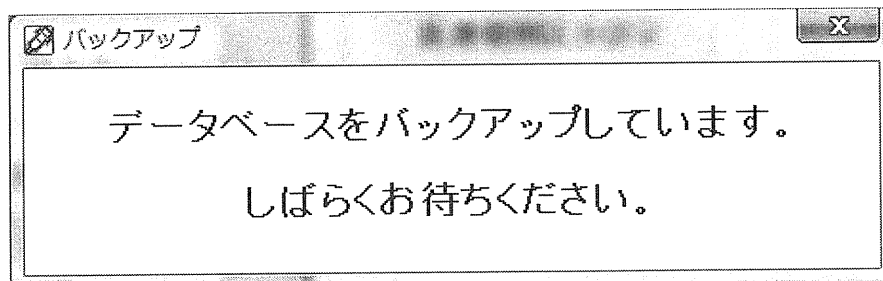 バックアップ
データベースをバックアップしています。
しばらくお待ちください。